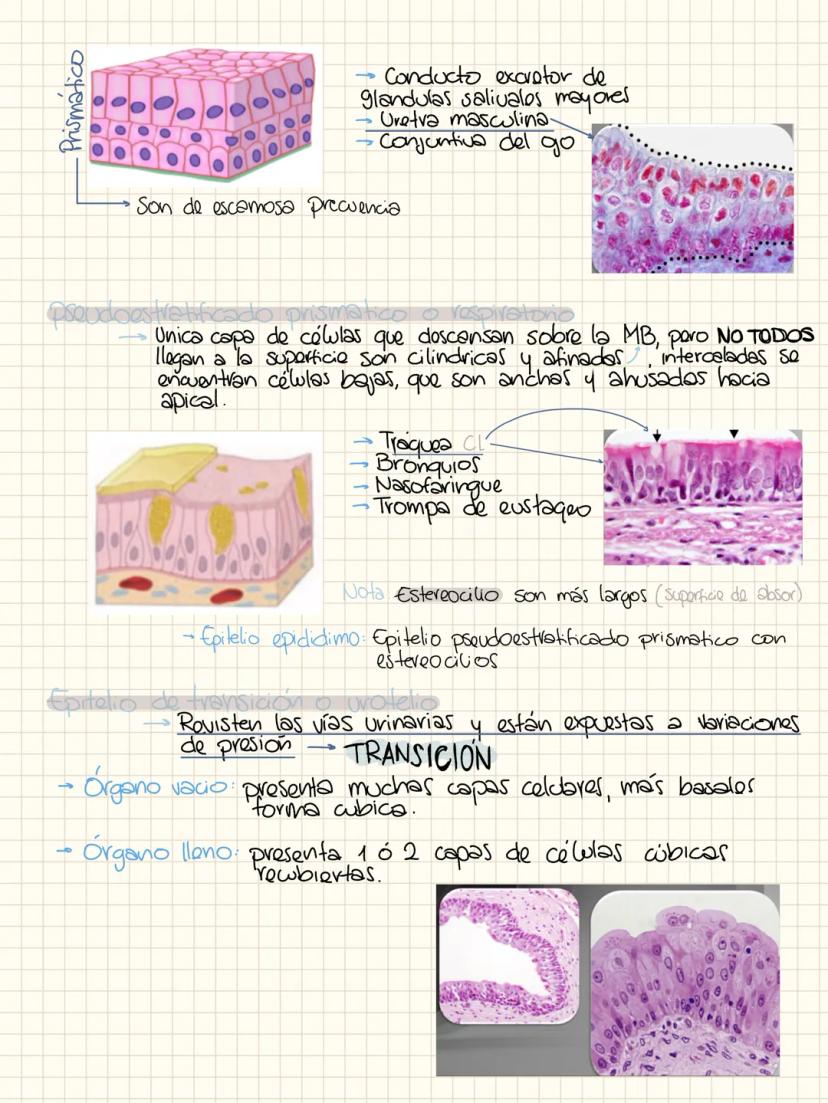 Prismático
→ Conducto excretor de
glandulas salivales mayores
→ Uretra masculina
→ Conjuntiva del ojo
Son de escamosa frecuencia
pseudoestratificado prismático o respiratorio
→ Unica capa de células que descansan sobre la MB, pero NO TODOS
llegan a la superficie son cilindricas y afinadas, intercaladas se
encuentran células bajas, que son anchas y ahusadas hacia
apical.
→ Tráquea Cl
→ Bronquios
→ Nasofaringue
→ Trompa de eustaqeo
Nota: Estereocilio son más largos (superficie de absor)
→ Epitelio epididimo: Epitelio pseudoestratificado prismatico con
estereocilios
Epitelio de transición o urotelio
→ Revisten las vías urinarias y están expuestas a variaciones
de presión → TRANSICIÓN
→ Órgano vacio: presenta muchas capas celulares, más basales
forma cubica.
→ Órgano lleno: presenta 1 ó 2 capas de células cúbicas
recubiertas.